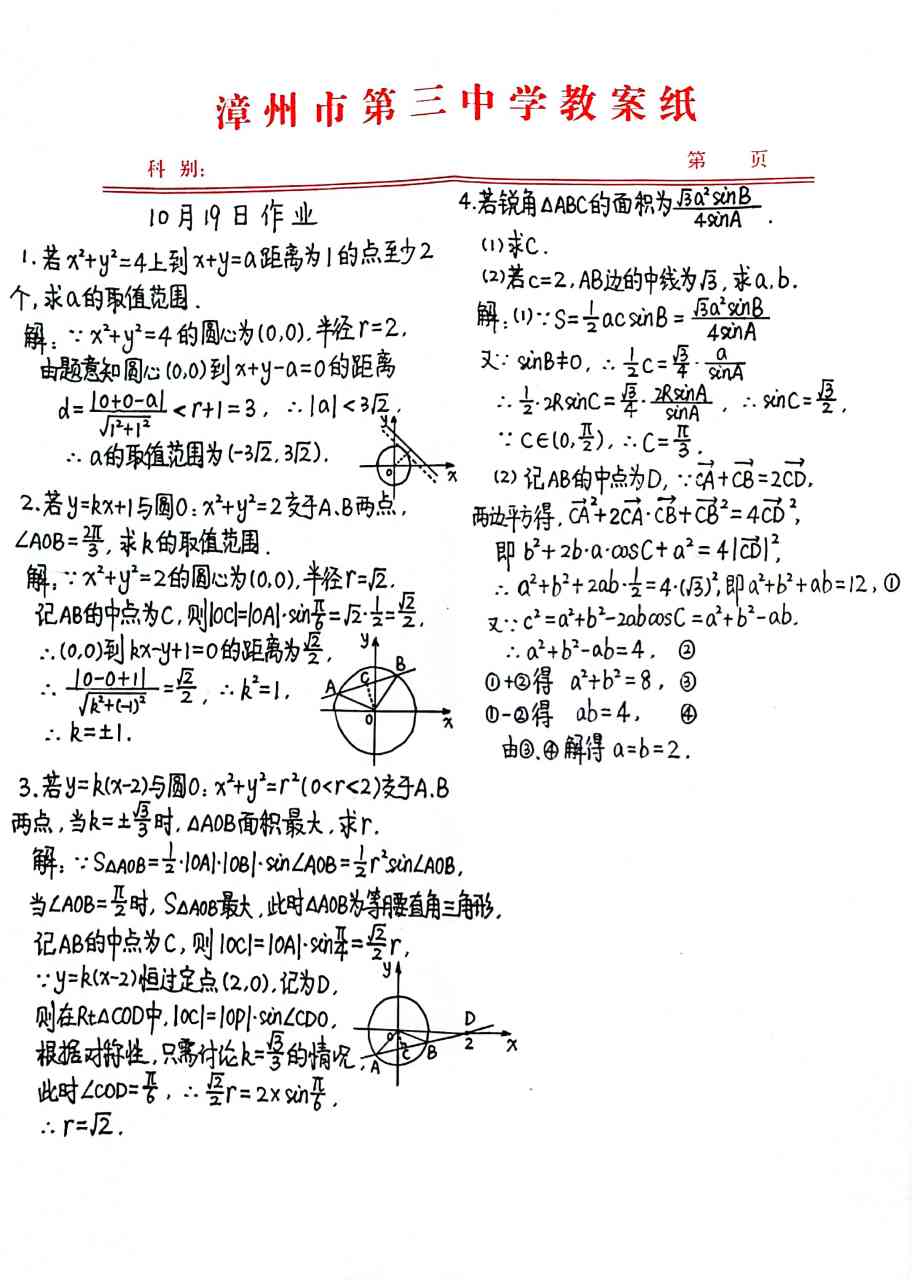 漳州市第三中学教案纸
科 别:
第 页
10月19日作业
1.若x²+y²=4上到x+y=a距离为1的点至少2
个,求a的取值范围.
解:∵x²+y²=4的圆心为(0,0),半径r=2,
由题意知圆心(0,0)到x+y-a=0的距离
d=|0+0-a|/√(1²+1²)<r+1=3, ∴|a|<3√2,
∴a的取值范围为(-3√2,3√2).
y
O
x
2.若y=kx+1与圆O:x²+y²=2交于A、B两点,
∠AOB=2π/3,求k的取值范围.
解:∵x²+y²=2的圆心为(0,0),半径r=√2.
记AB的中点为C,则|OC|=|OA|·sinπ/6=√2·1/2=√2/2,
∴(0,0)到kx-y+1=0的距离为√2/2,
∴|0-0+1|/√(k²+(-1)²)=√2/2, ∴k²=1,
∴k=±1.
y
A
C
B
O
x
3.若y=k(x-2)与圆O:x²+y²=r²(0<r<2)交于A、B
两点,当k=±√3/3时,△AOB面积最大,求r.
解:∵S△AOB=1/2·|OA|·|OB|·sin∠AOB=1/2r²sin∠AOB,
当∠AOB=π/2时,S△AOB最大,此时△AOB为等腰直角三角形,
记AB的中点为C,则|OC|=|OA|·sinπ/4=√2/2r,
∵y=k(x-2)恒过定点(2,0),记为D,
则在Rt△COD中,|OC|=|OP|·sin∠CDO,
根据对称性,只需讨论k=√3/3的情况,
此时∠COD=π/6, ∴√2/2r=2×sinπ/6,
∴r=√2.
y
O
D
C
B
2
x
A
4.若锐角△ABC的面积为√3a²sinB/4sinA.
(1)求C.
(2)若c=2,AB边的中线为√3,求a,b.
解:(1)∵S=1/2acsinB=√3a²sinB/4sinA
又∵sinB≠0,∴1/2c=√3/4·a/sinA
∴1/2·2RsinC=√3/4·2RsinA/sinA, ∴sinC=√3/2,
∵C∈(0,π/2),∴C=π/3.
(2)记AB的中点为D,∵CA→+CB→=2CD→,
两边平方得,CA→²+2CA→·CB→+CB→²=4CD→²,
即b²+2b·a·cosC+a²=4|CD→|²,
∴a²+b²+2ab·1/2=4·(√3)²,即a²+b²+ab=12,①
又∵c²=a²+b²-2abcosC=a²+b²-ab.
∴a²+b²-ab=4. ②
①+②得 a²+b²=8, ③
①-②得 ab=4, ④
由③、④解得a=b=2.